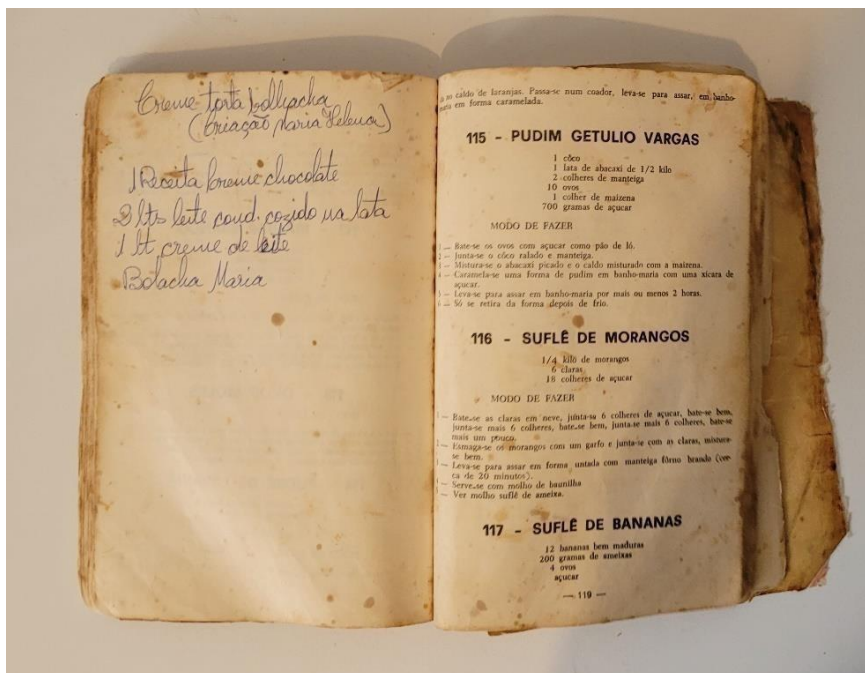 Creme torta bolhacha
(Criação Maria Helena)
1 Receita creme chocolate
2 lts leite cond. cozido na lata
1 lt creme de leite
Bolacha Maria
no caldo de laranjas. Passa-se num coador, leva-se para assar, em banho-
maria em forma caramelada.
115 - PUDIM GETULIO VARGAS
1 côco
1 lata de abacaxi de 1/2 kilo
2 colheres de manteiga
10 ovos
1 colher de maizena
700 gramas de açucar
MODO DE FAZER
— Bate-se os ovos com açucar como pão de ló.
— Junta-se o côco ralado e manteiga.
— Mistura-se o abacaxi picado e o caldo misturado com a maizena.
— Caramela-se uma forma de pudim em banho-maria com uma xícara de
açucar.
— Leva-se para assar em banho-maria por mais ou menos 2 horas.
— Só se retira da forma depois de frio.
116 - SUFLÊ DE MORANGOS
1/4 kilo de morangos
6 claras
18 colheres de açucar
MODO DE FAZER
— Bate-se as claras em neve, junta-se 6 colheres de açucar, bate-se bem,
junta-se mais 6 colheres, bate-se bem, junta-se mais 6 colheres, bate-se
mais um pouco.
— Esmaga-se os morangos com um garfo e junta-se com as claras, mistura-
se bem.
— Leva-se para assar em forma untada com manteiga fôrno brando (cer-
ca de 20 minutos).
— Serve-se com molho de baunilha
— Ver molho suflê de ameixa.
117 - SUFLÊ DE BANANAS
12 bananas bem maduras
200 gramas de ameixas
4 ovos
açucar
— 119 —